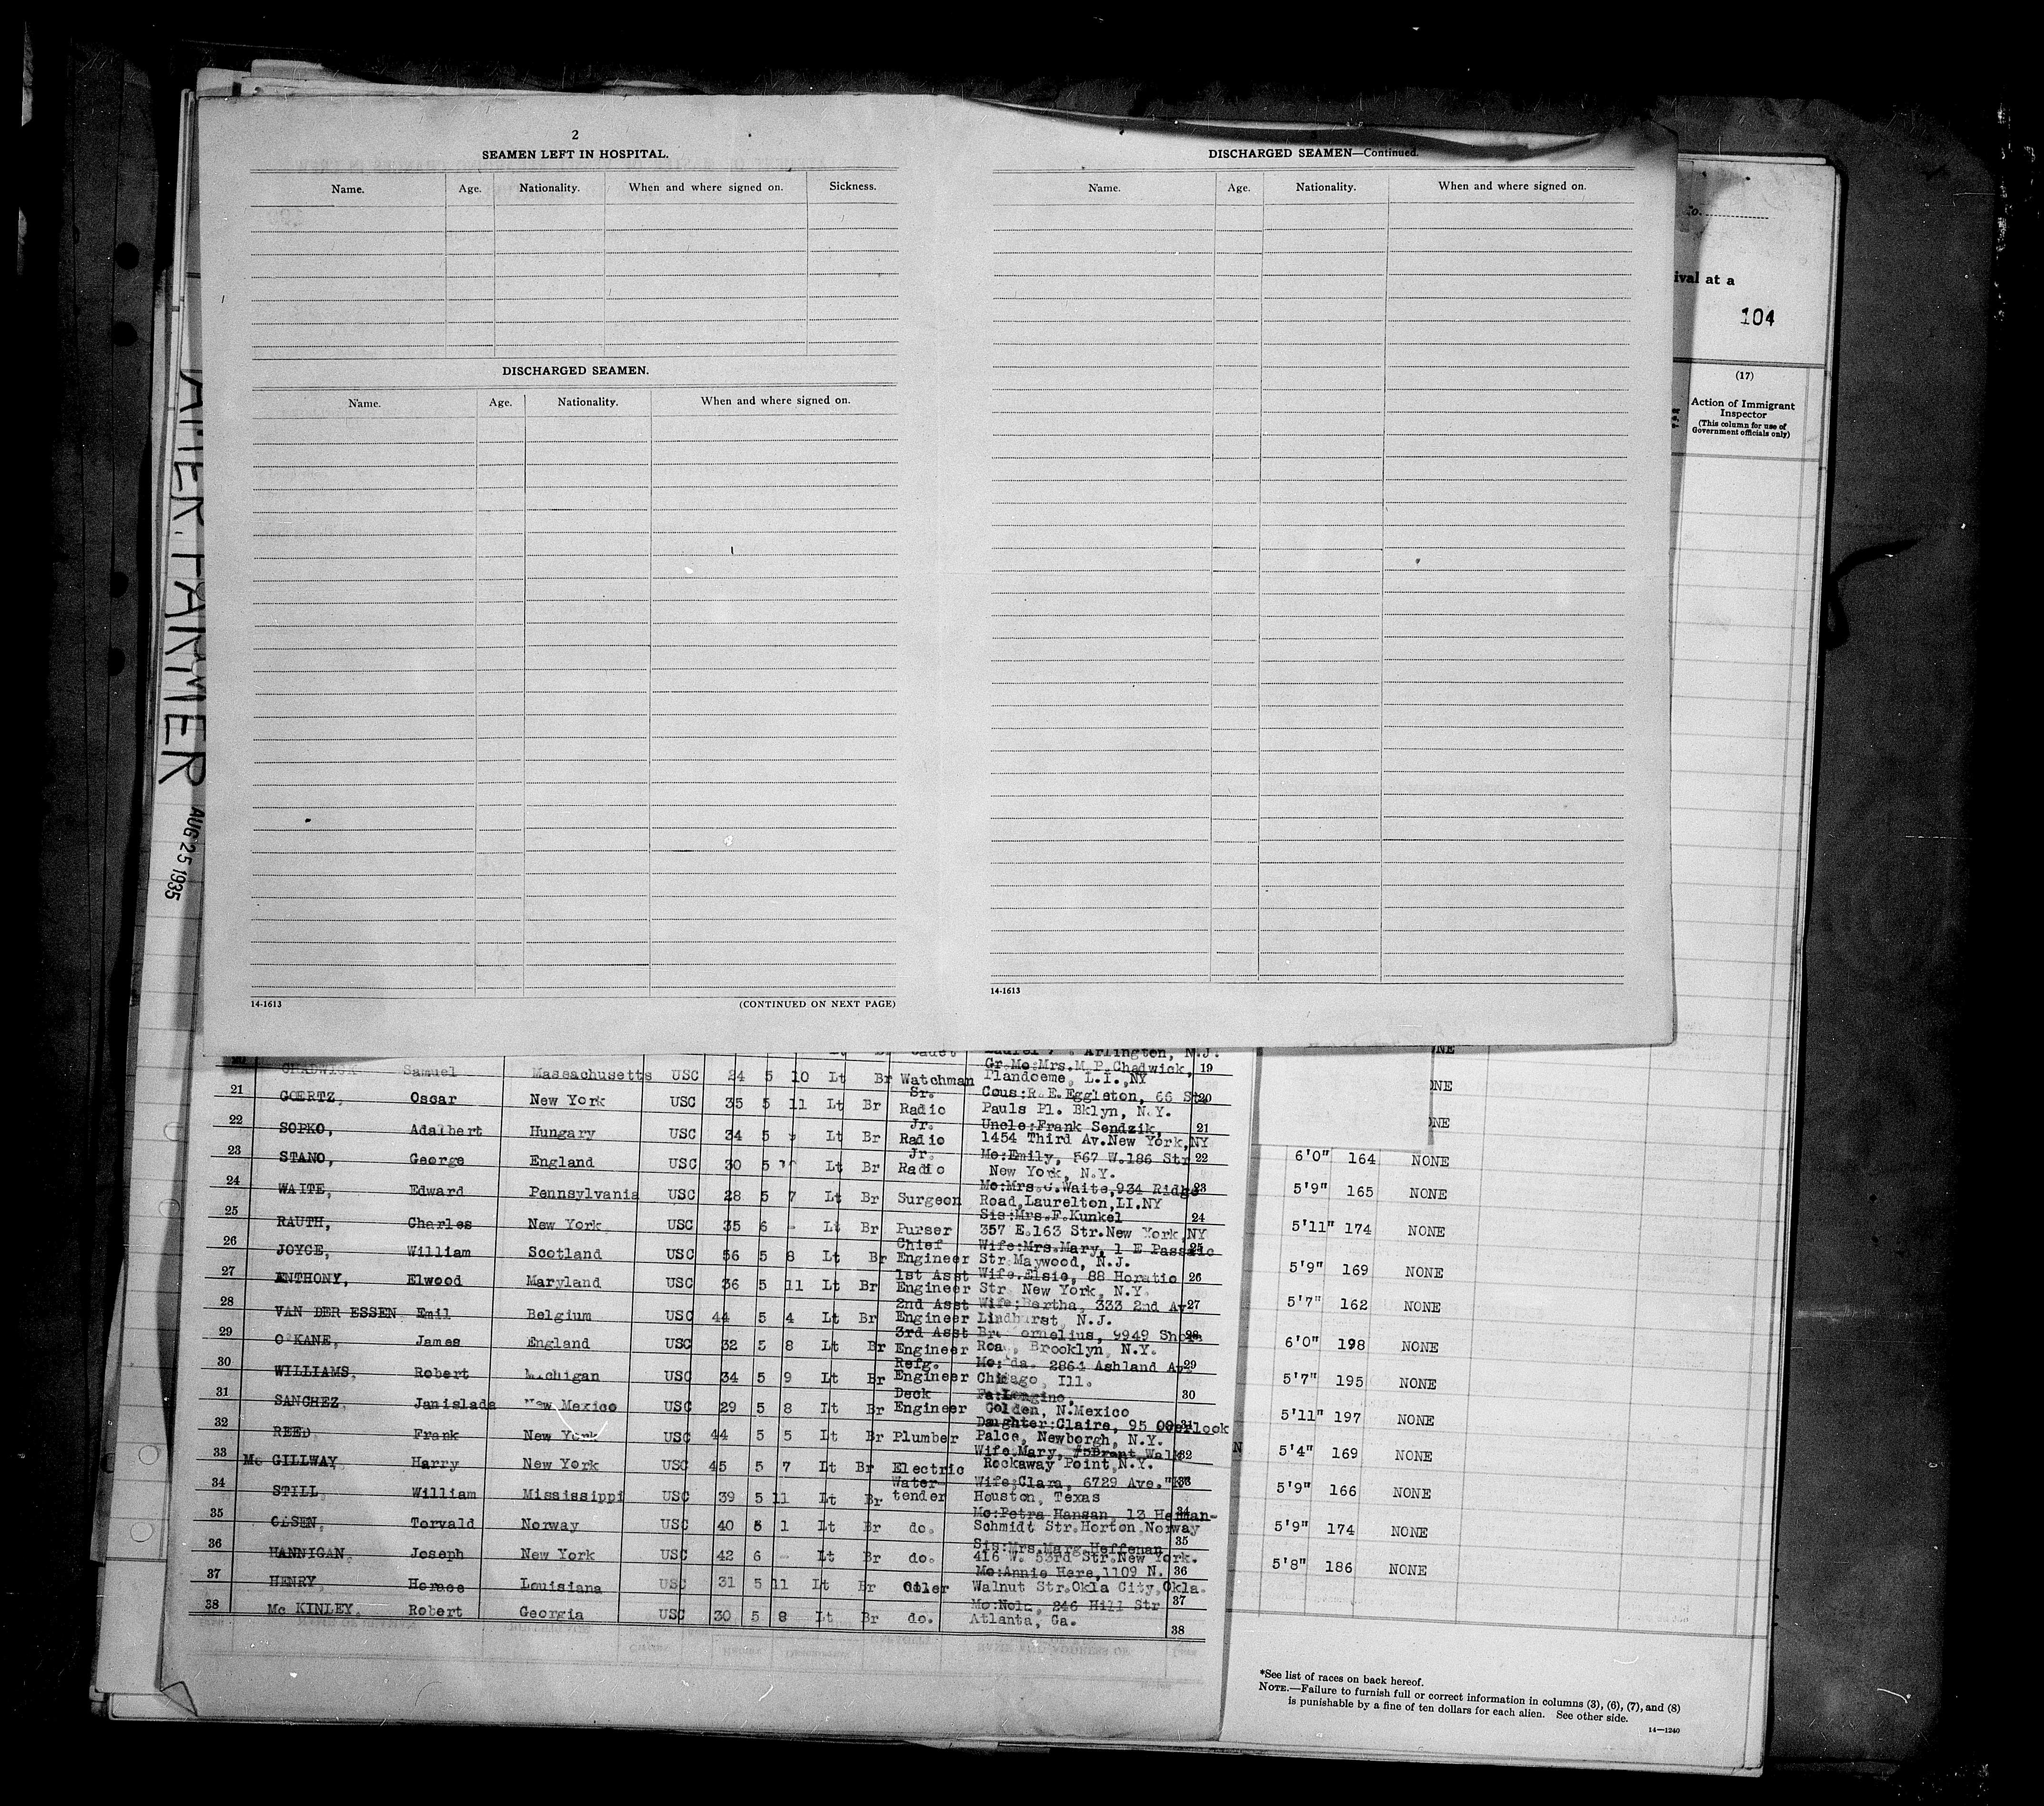 2
SEAMEN LEFT IN HOSPITAL.
Name. Age. Nationality. When and where signed on. Sickness.
DISCHARGED SEAMEN.
Name. Age. Nationality. When and where signed on.
14-1613 (CONTINUED ON NEXT PAGE)
DISCHARGED SEAMEN—Continued.
Name. Age. Nationality. When and where signed on.
14-1613
ival at a
104
(17)
Action of Immigrant
Inspector
(This column for use of
Government officials only)
AMER. FARMER
AUG 25 1935
Arlington, N.J.
CHADWICK Samuel Massachusetts USC 24 5 10 Lt Br Watchman Gr.Mo:Mrs.M.P.Chadwick, 19
Plandome, L.I.,NY
21 GOERTZ, Oscar New York USC 35 5 11 Lt Br Sr. Radio Cous:R.E.Eggleton, 66 St. 20
Pauls Pl. Bklyn, N.Y.
22 SOPKO, Adalbert Hungary USC 34 5 Lt Br Jr. Radio Uncle:Frank Sendzik, 21
1454 Third Av.New York,NY
23 STANO, George England USC 30 5 Lt Br Jr. Radio Mo:Emily, 567 W.186 Str 22
New York, N.Y.
24 WAITE, Edward Pennsylvania USC 28 5 7 Lt Br Surgeon Mo:Mrs.C.Waite,934 Ridge 23
Road,Laurelton,LI.NY
25 RAUTH, Charles New York USC 35 6 - Lt Br Purser Sis:Mrs.F.Kunkel 24
357 E.163 Str.New York,NY
26 JOYCE, William Scotland USC 56 5 8 Lt Br Chief Engineer Wife:Mrs.Mary, 1 E Passaic 25
Str.Maywood, N.J.
27 ANTHONY, Elwood Maryland USC 36 5 11 Lt Br 1st Asst Engineer Wife.Elsie, 88 Horatio 26
Str. New York, N.Y.
28 VAN DER ESSEN Emil Belgium USC 44 5 4 Lt Br 2nd Asst Engineer Wife;Bertha, 333 2nd Av 27
Lindhurst, N.J.
29 O'KANE, James England USC 32 5 8 Lt Br 3rd Asst Engineer ornelius, 9949 Shore 28
Road, Brooklyn, N.Y.
30 WILLIAMS, Robert Michigan USC 34 5 9 Lt Br Refg. Engineer 2864 Ashland Av 29
Chicago, Ill.
31 SANCHEZ, Janislada New Mexico USC 29 5 8 Lt Br Deck Engineer Fa:Longino, 30
Golden, N.Mexico
32 REED, Frank New York USC 44 5 5 Lt Br Plumber Daughter:Claire, 95 Overlook 31
Palce, Newborgh, N.Y.
33 Mc GILLWAY, Harry New York USC 45 5 7 Lt Br Electric Wife.Mary, Walk 32
Rockaway Point,N.Y.
34 STILL William Mississippi USC 39 5 11 Lt Br Water-tender Wife;Clara, 6729 Ave."K" 33
Houston, Texas
35 OLSEN, Torvald Norway USC 40 6 1 Lt Br do. Mo:Petra Hansan, 13 Herman- 34
Schmidt Str.Horton Norway
36 HANNIGAN, Joseph New York USC 42 6 - Lt Br do. Sis:Mrs.Marg.Heffenan 35
416 W. 53rd Str.New York.
37 HENRY, Horace Louisiana USC 31 5 11 Lt Br Oiler Mo:Annie Here,1109 N. 36
Walnut Str.Okla City,Okla.
38 Mc KINLEY, Robert Georgia USC 30 5 8 Lt Br do. Mo:Nola, 246 Hill Str 37
Atlanta, Ga.
38
6'0" 164 NONE
5'9" 165 NONE
5'11" 174 NONE
5'9" 169 NONE
5'7" 162 NONE
6'0" 198 NONE
5'7" 195 NONE
5'11" 197 NONE
5'4" 169 NONE
5'9" 166 NONE
5'9" 174 NONE
5'8" 186 NONE
*See list of races on back hereof.
NOTE.—Failure to furnish full or correct information in columns (3), (6), (7), and (8)
is punishable by a fine of ten dollars for each alien. See other side.
14—1240